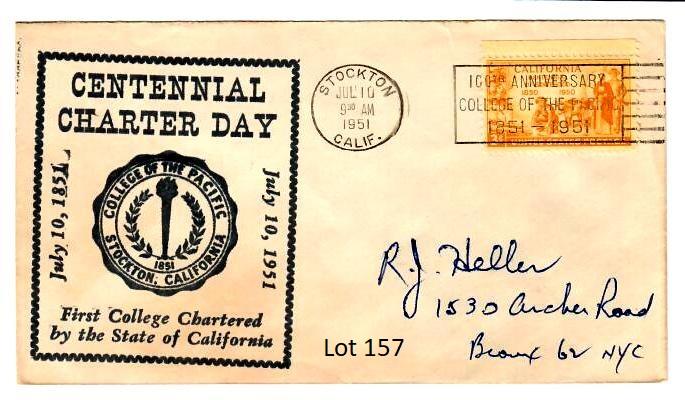 CENTENNIAL
CHARTER DAY
July 10, 1851
COLLEGE OF THE PACIFIC
1851
STOCKTON, CALIFORNIA
July 10, 1951
First College Chartered
by the State of California
STOCKTON
JUL 10
930 AM
1951
CALIF.
CALIFORNIA
1850 1950
100TH ANNIVERSARY
COLLEGE OF THE PACIFIC
1851 - 1951
R.J. Heller
1530 Archer Road
Bronx 62 NYC
Lot 157